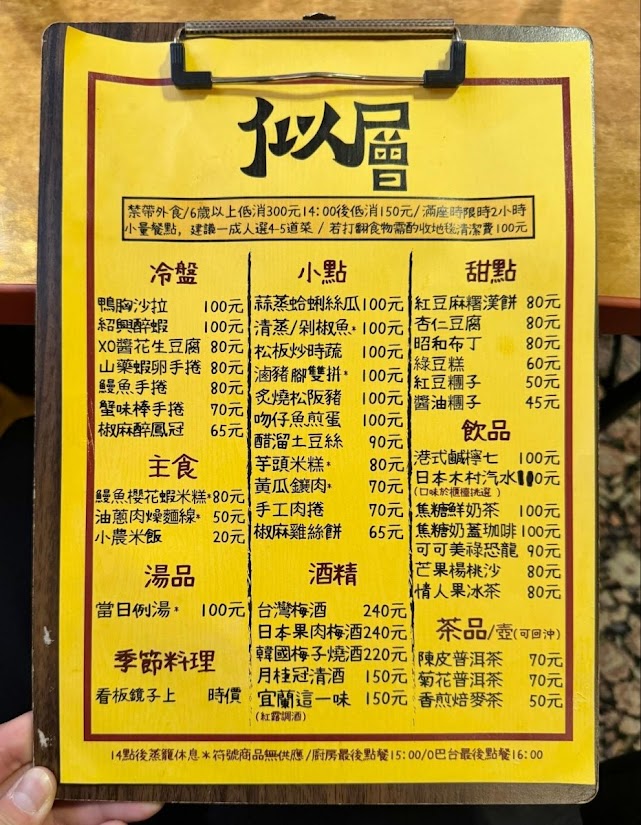 似層
禁帶外食/6歲以上低消300元14:00後低消150元/滿座時限時2小時
小量餐點，建議一成人選4-5道菜 / 若打翻食物需酌收地毯清潔費100元
冷盤
鴨胸沙拉 100元
紹興醉蝦 100元
XO醬花生豆腐 80元
山藥蝦卵手捲 80元
鰻魚手捲 80元
蟹味棒手捲 70元
椒麻醉鳳冠 65元
主食
鰻魚櫻花蝦米糕*80元
油蔥肉燥麵線* 50元
小農米飯 20元
湯品
當日例湯* 100元
季節料理
看板鏡子上 時價
小點
蒜蒸蛤蜊絲瓜100元
清蒸/剁椒魚* 100元
松板炒時蔬 100元
滷豬腳雙拼* 100元
炙燒松阪豬 100元
吻仔魚煎蛋 100元
醋溜土豆絲 90元
芋頭米糕* 80元
黃瓜鑲肉* 70元
手工肉捲 70元
椒麻雞絲餅 65元
酒精
台灣梅酒 240元
日本果肉梅酒240元
韓國梅子燒酒220元
月桂冠清酒 150元
宜蘭這一味 150元
(紅露調酒)
甜點
紅豆麻糬漢餅 80元
杏仁豆腐 80元
昭和布丁 80元
綠豆糕 60元
紅豆糰子 50元
醬油糰子 45元
飲品
港式鹹檸七 100元
日本木村汽水100元
(口味於櫃檯挑選)
焦糖鮮奶茶 100元
焦糖奶蓋珈琲100元
可可美祿恐龍 90元
芒果楊桃沙 80元
情人果冰茶 80元
茶品/壺(可回沖)
陳皮普洱茶 70元
菊花普洱茶 70元
香煎焙麥茶 50元
14點後蒸籠休息＊符號商品無供應 / 廚房最後點餐15:00/0巴台最後點餐16:00